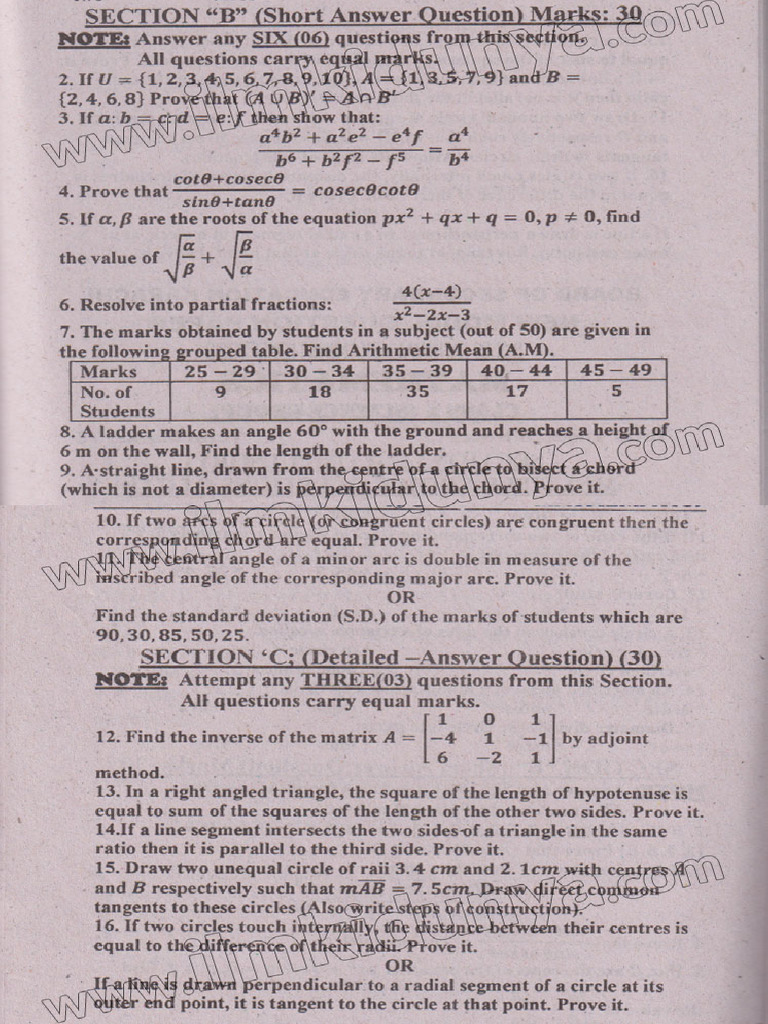 SECTION “B” (Short Answer Question) Marks: 30
NOTE: Answer any SIX (06) questions from this section.
All questions carry equal marks.
2. If U = {1, 2, 3, 4, 5, 6, 7, 8, 9, 10}, A = {1, 3, 5, 7, 9} and B =
{2, 4, 6, 8} Prove that (A ∪ B)′ = A′ ∩ B′
3. If a: b = c: d = e: f then show that:
a⁴b² + a²e² − e⁴f / b⁶ + b²f² − f⁵ = a⁴ / b⁴
4. Prove that cotθ+cosecθ / sinθ+tanθ = cosecθcotθ
5. If α, β are the roots of the equation px² + qx + q = 0, p ≠ 0, find
the value of √(α/β) + √(β/α)
6. Resolve into partial fractions: 4(x−4) / x²−2x−3
7. The marks obtained by students in a subject (out of 50) are given in
the following grouped table. Find Arithmetic Mean (A.M).
Marks 25 – 29 30 – 34 35 – 39 40 – 44 45 – 49
No. of Students 9 18 35 17 5
8. A ladder makes an angle 60° with the ground and reaches a height of
6 m on the wall, Find the length of the ladder.
9. A straight line, drawn from the centre of a circle to bisect a chord
(which is not a diameter) is perpendicular to the chord. Prove it.
10. If two arcs of a circle (or congruent circles) are congruent then the
corresponding chord are equal. Prove it.
11. The central angle of a minor arc is double in measure of the
inscribed angle of the corresponding major arc. Prove it.
OR
Find the standard deviation (S.D.) of the marks of students which are
90, 30, 85, 50, 25.
SECTION ‘C; (Detailed –Answer Question) (30)
NOTE: Attempt any THREE(03) questions from this Section.
All questions carry equal marks.
12. Find the inverse of the matrix A = [1 0 1; −4 1 −1; 6 −2 1] by adjoint
method.
13. In a right angled triangle, the square of the length of hypotenuse is
equal to sum of the squares of the length of the other two sides. Prove it.
14.If a line segment intersects the two sides of a triangle in the same
ratio then it is parallel to the third side. Prove it.
15. Draw two unequal circle of raii 3.4 cm and 2.1cm with centres A
and B respectively such that mAB = 7.5cm. Draw direct common
tangents to these circles (Also write steps of construction).
16. If two circles touch internally, the distance between their centres is
equal to the difference of their radii. Prove it.
OR
If a line is drawn perpendicular to a radial segment of a circle at its
outer end point, it is tangent to the circle at that point. Prove it.
www.ilmkidunya.com
www.ilmkidunya.com
www.ilmkidunya.com